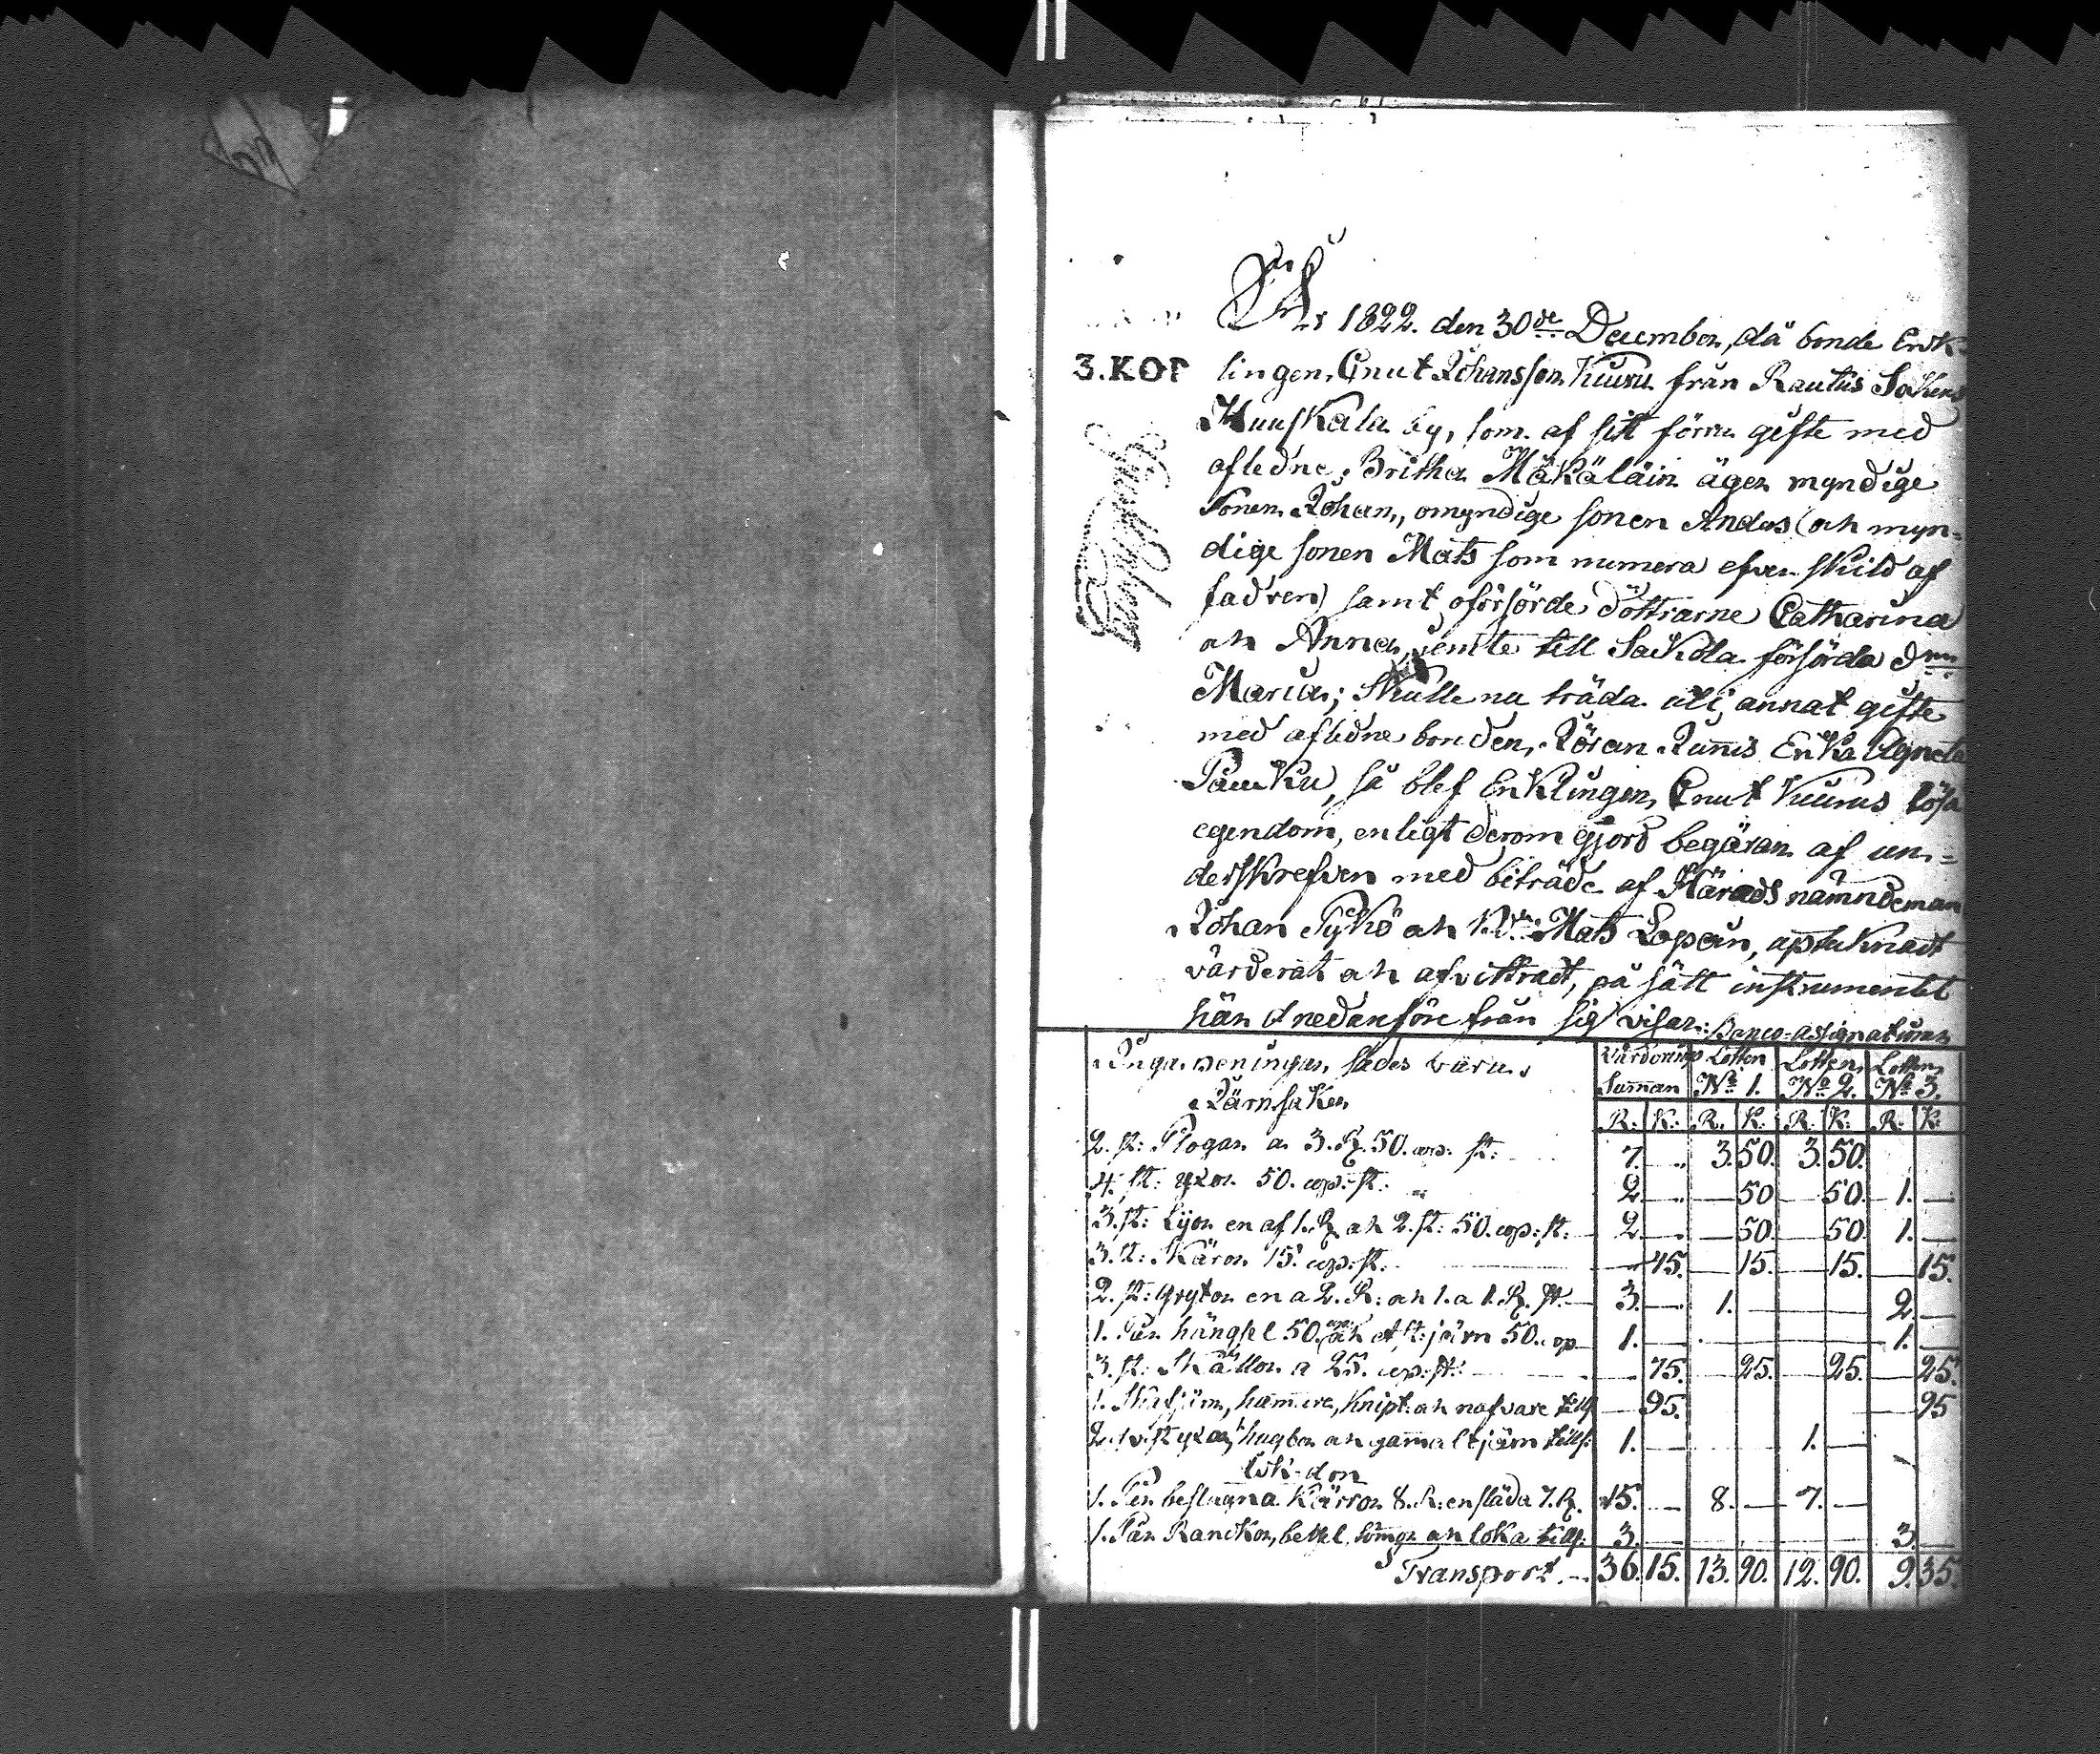 År 1822. den 30de December, då bonde Enk-
3.KOP
lingen, Cnut Johansson Kuuru från Rautus Sokens
Huuskala by, som af sitt förra gifte med
afledne Britha Mäkäläin äger myndige
Sonen Johan, omyndige sonen Anders (och myn-
dige sonen Mats som numera efven skild af
fadren) samt oförsörde döttrarne Catharina
och Anna, jemte till Sakkola försörda
Maria; skulle nu träda uti annat gifte
med afledne bonden, Enka Agneta
Paukku, så blef Enklingen, Cnut Kuurus lösa
egendom, enligt derom gjord begäran af un-
derskrefven med biträde af Härads nämndeman
Johan Pykö och Mats Lopain, upteknadt
värderat och afvittradt, på sätt instrumentet
här nedanföre från sig visar: Banco-assignationer
Inga peningar, sädes varu.
Värderings Lotten Lotten Lotten
Summan No 1. No 2. No 3.
Järnsaker
R. K. R. K. R. K. R. K.
2. st: Plogar a 3. R. 50. cop: st: 7. 3. 50. 3. 50.
4. st: yxor 50. cop: st: 2. — 50 — 50. 1. —
3. st: Lijor en af 1. R och 2. st: 50. cop: st: 2. — 50. — 50. 1. —
3. st: Skäror 15. cop: st. — 45. — 15. — 15. — 15.
2. st: grytor en a 2. R: och 1. a 1. R. st. 3. — 1. — 2. —
1. Par hängsel 50. cop: och et st: järn 50. cop 1. — 1. —
3. st: Skällor a 25. cop: st: — 75. — 25. — 25. — 25.
1. hammare, knipt: och nafvare till — 95. — 95
yxor, hugbor och gammalt järn tills: 1. — 1. —
Åk-don
1. Par beslagna Kärror 8. R: en släda 7. R. 15. — 8. — 7. —
1. Par Rankor, betsel, tömar och loka tills: 3. — 3. —
Transport. 36. 15. 13. 90. 12. 90. 9. 35.